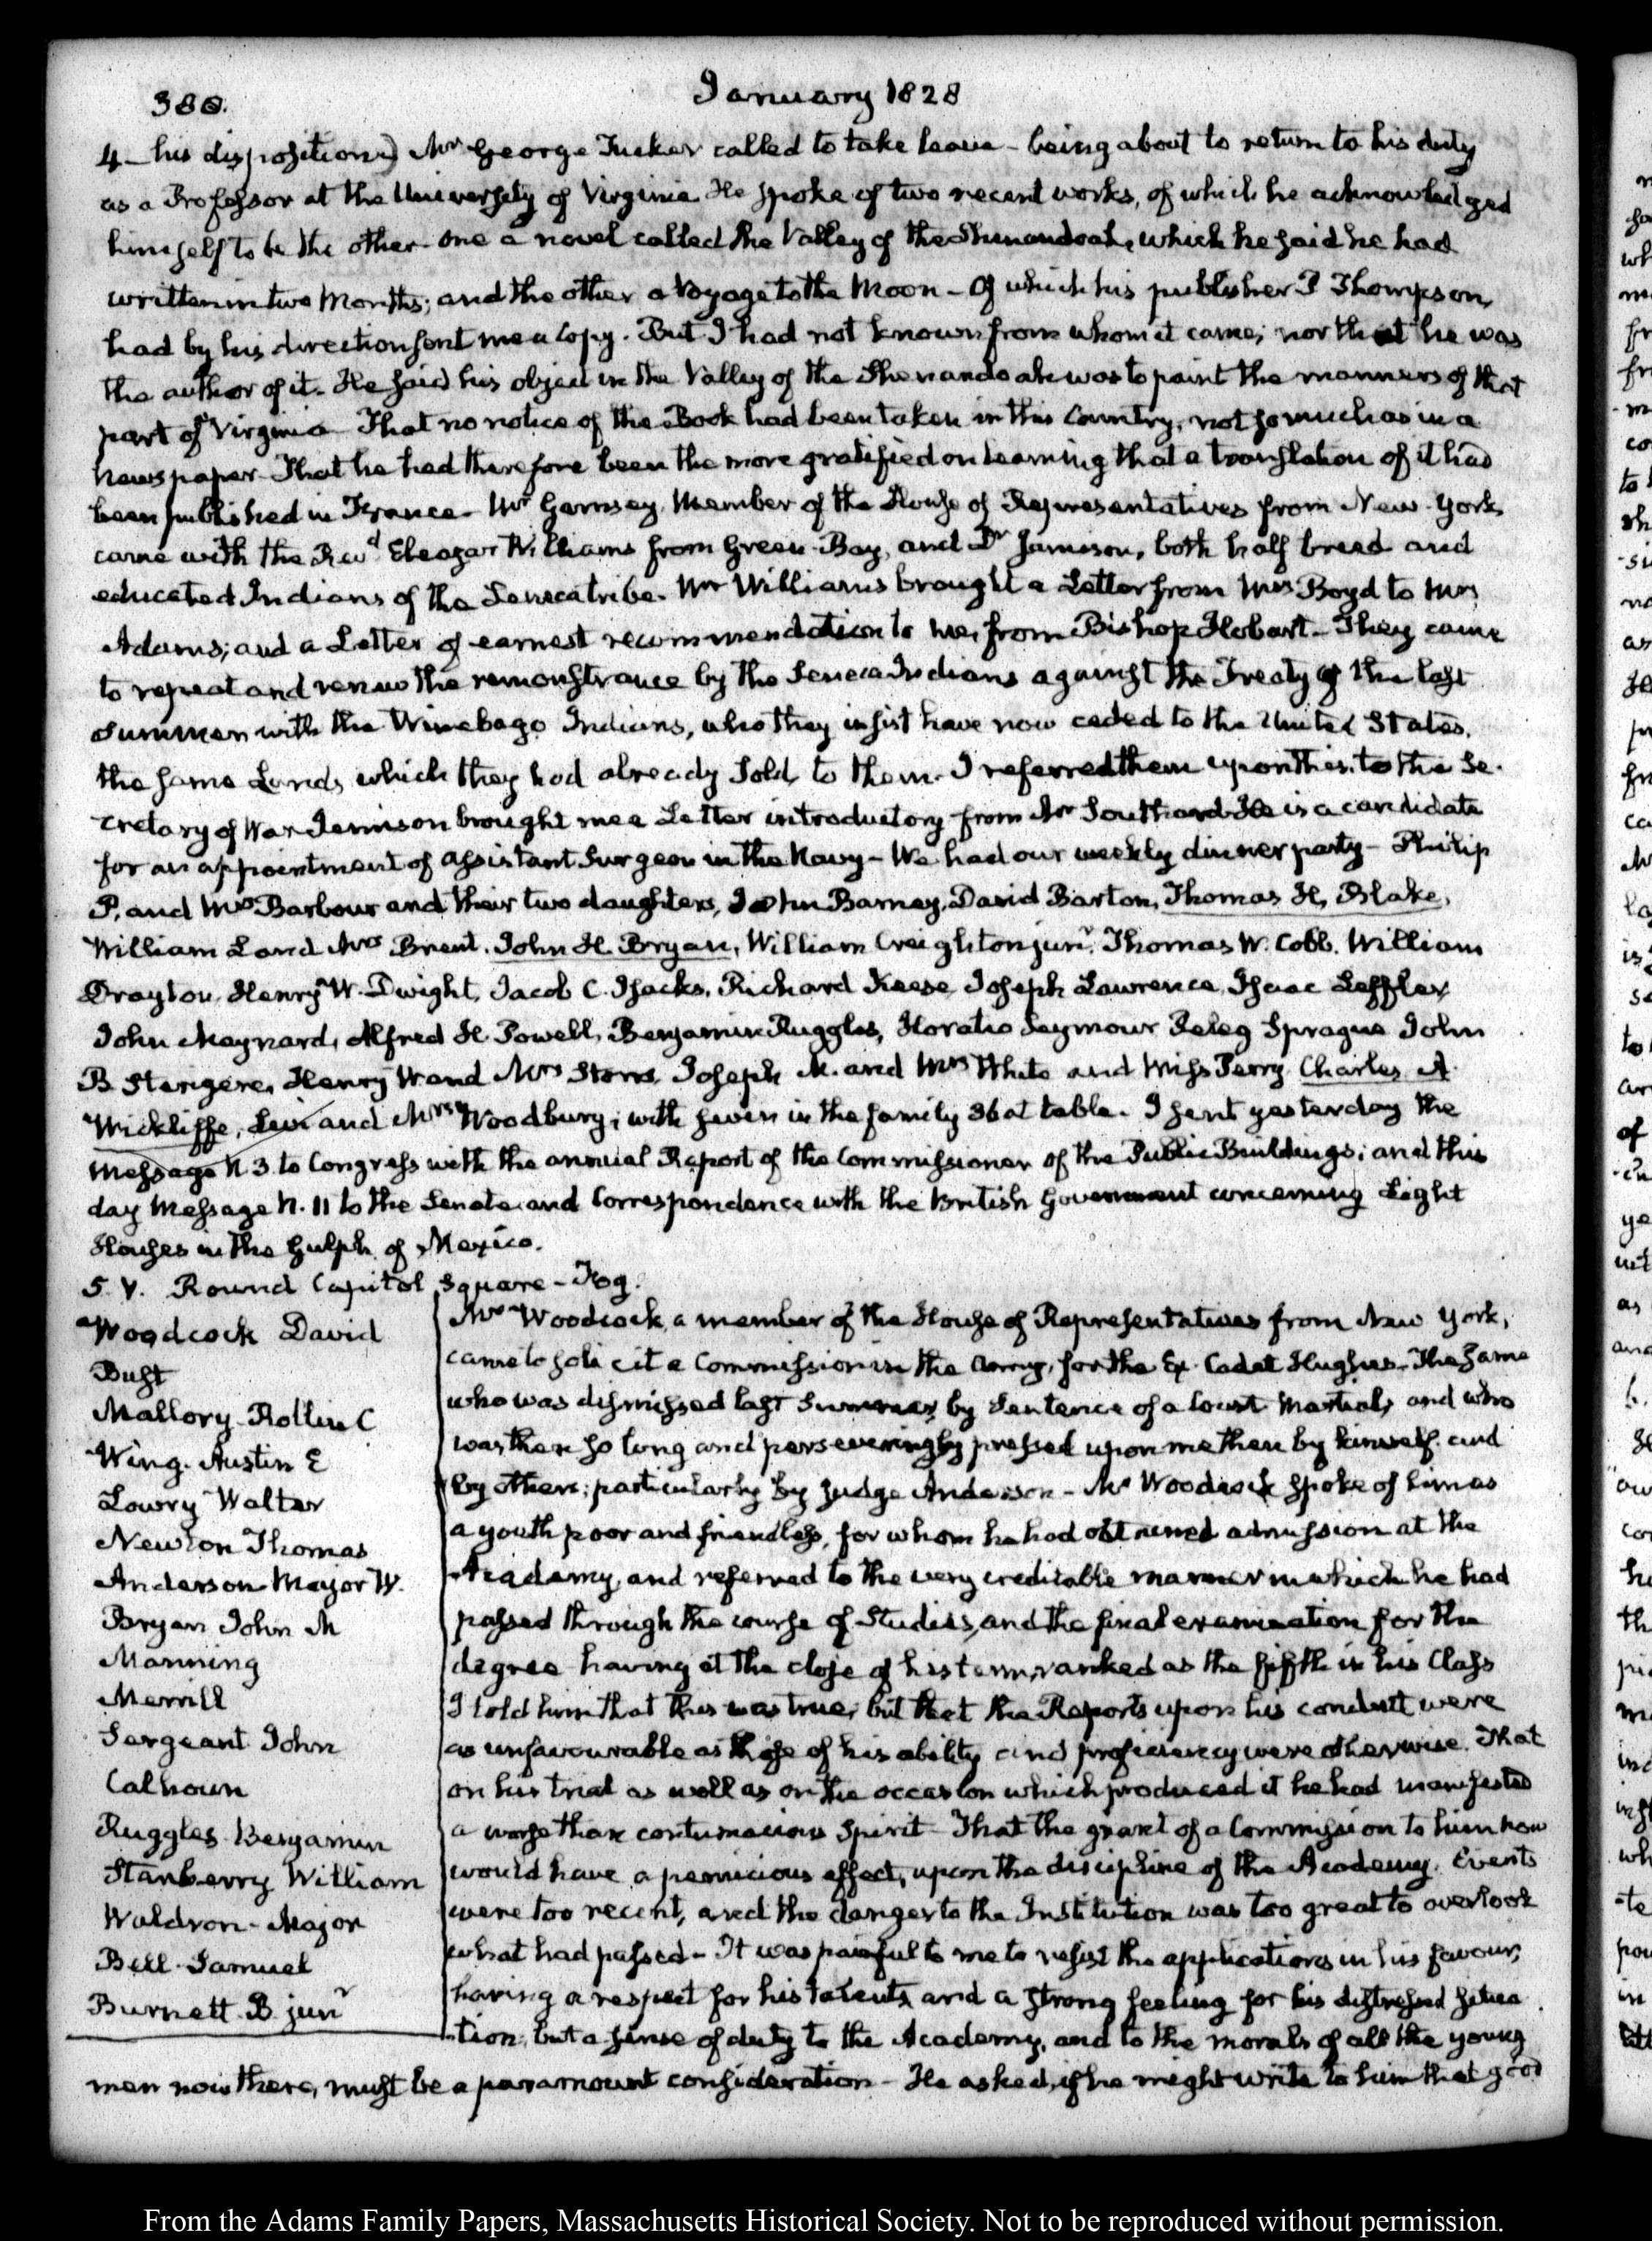 388.
January 1828
4 — his disposition) Mr George Tucker called to take leave - being about to return to his duty
as a Professor at the University of Virginia He spoke of two recent works, of which he acknowledged
himself to be the other. One a novel called the Valley of the Shenandoah, which he said he had
written in two Months; and the other a Voyage to the Moon - Of which his publisher P Thompson,
had by his direction sent me a Copy. But I had not known from whom it came; nor that he was
the author of it. He said his object in the Valley of the Shenandoah was to paint the manners of that
part of Virginia That no notice of the Book had been taken in this Country, not so much as in a
newspaper. That he had therefore been the more gratified on learning that a translation of it had
been published in France. Mr Garnsey, Member of the House of Representatives from New-York
came with the Revd Eleazar Williams from Green-Bay, and Dr Jamison, both half breed and
educated Indians of the Seneca tribe. Mr Williams brought a Letter from Mrs Boyd to Mrs
Adams; and a Letter of earnest recommendation to me, from Bishop Hobart - They came
to repeat and renew the remonstrance by the Seneca Indians against the Treaty of the last
summer with the Winebago Indians, who they insist have now ceded to the United States,
the same Lands which they had already sold to them. I referred them upon this to the Se-
cretary of War Jemison brought me a Letter introductory from Mr Southard. He is a candidate
for an appointment of assistant Surgeon in the Navy - We had our weekly dinner party - Philip
P. and Mrs Barbour and their two daughters, John Barney, David Barton, Thomas H. Blake,
William L and Mrs Brent. John H. Bryan, William Creighton junr. Thomas W. Cobb. William
Drayton, Henry W. Dwight, Jacob C. Isacks, Richard Keese Joseph Lawrence, Isaac Leffler
John Maynard, Alfred H. Powell, Benjamin Ruggles, Horatio Seymour Peleg Sprague John
B Sterigere, Henry R and Mrs Storrs Joseph M. and Mrs White and Miss Perry Charles A
Wickliffe, Levi and Mrs Woodbury; with seven in the family 36 at table. I sent yesterday the
Message N. 3 to Congress with the annual Report of the Commissioner of the Public Buildings; and this
day Message N. 11 to the Senate and Correspondence with the British Government concerning Light
Houses in the Gulph of Mexico.
5. V. Round Capitol Square - Fog.
Woodcock David
Bust
Mallory Rollin C
Wing. Austin E
Lowry Walter
Newton Thomas
Anderson Mayor W.
Bryan John M
Manning
Merrill
Sergeant John
Calhoun
Ruggles Benjamin
Stanberry William
Waldron - Major
Bell Samuel
Burnett. B. junr
Mr Woodcock, a member of the House of Representatives from New York,
came to solicit a Commission in the Army, for the Ex. Cadet Hughes - The same
who was dismissed last Summer by Sentence of a Court Martial, and who
was then so long and perseveringly pressed upon me then by himself. and
by others; particularly by Judge Anderson - Mr Woodcock spoke of him as
a youth poor and friendless, for whom he had obtained admission at the
Academy, and referred to the very creditable manner in which he had
passed through the course of Studies, and the final examination for the
degree having at the close of his term, ranked as the fifth in his Class
I told him that this was true; but that the Reports upon his conduct were
as unfavourable as those of his ability and proficiency were otherwise. That
on his trial as well as on the occasion which produced it he had manifested
a worse than contumacious Spirit - That the grant of a Commission to him now
would have a pernicious effect, upon the discipline of the Academy. Events
were too recent, and the danger to the Institution was too great to overlook
what had passed - It was painful to me to resist the applications in his favour,
having a respect for his talents, and a strong feeling for his distressed situa
tion; but a sense of duty to the Academy, and to the morals of all the young
men now there, must be a paramount consideration - He asked, if he might write to him that good
From the Adams Family Papers, Massachusetts Historical Society. Not to be reproduced without permission.